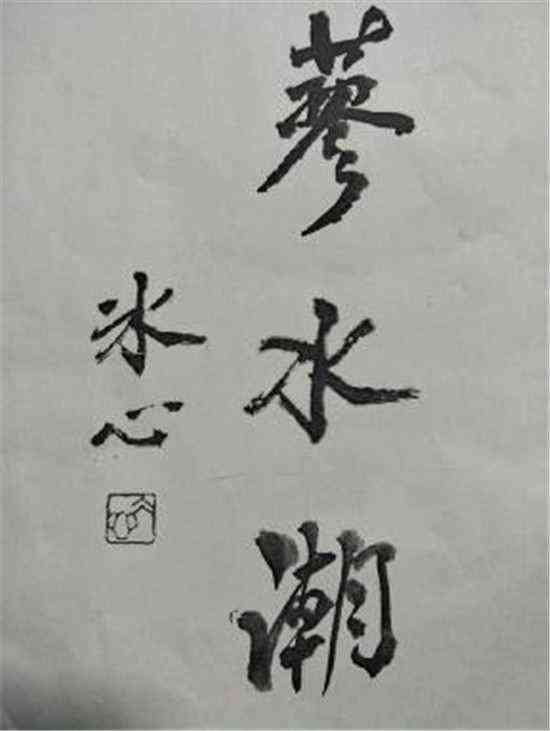 蓼水潮
冰心